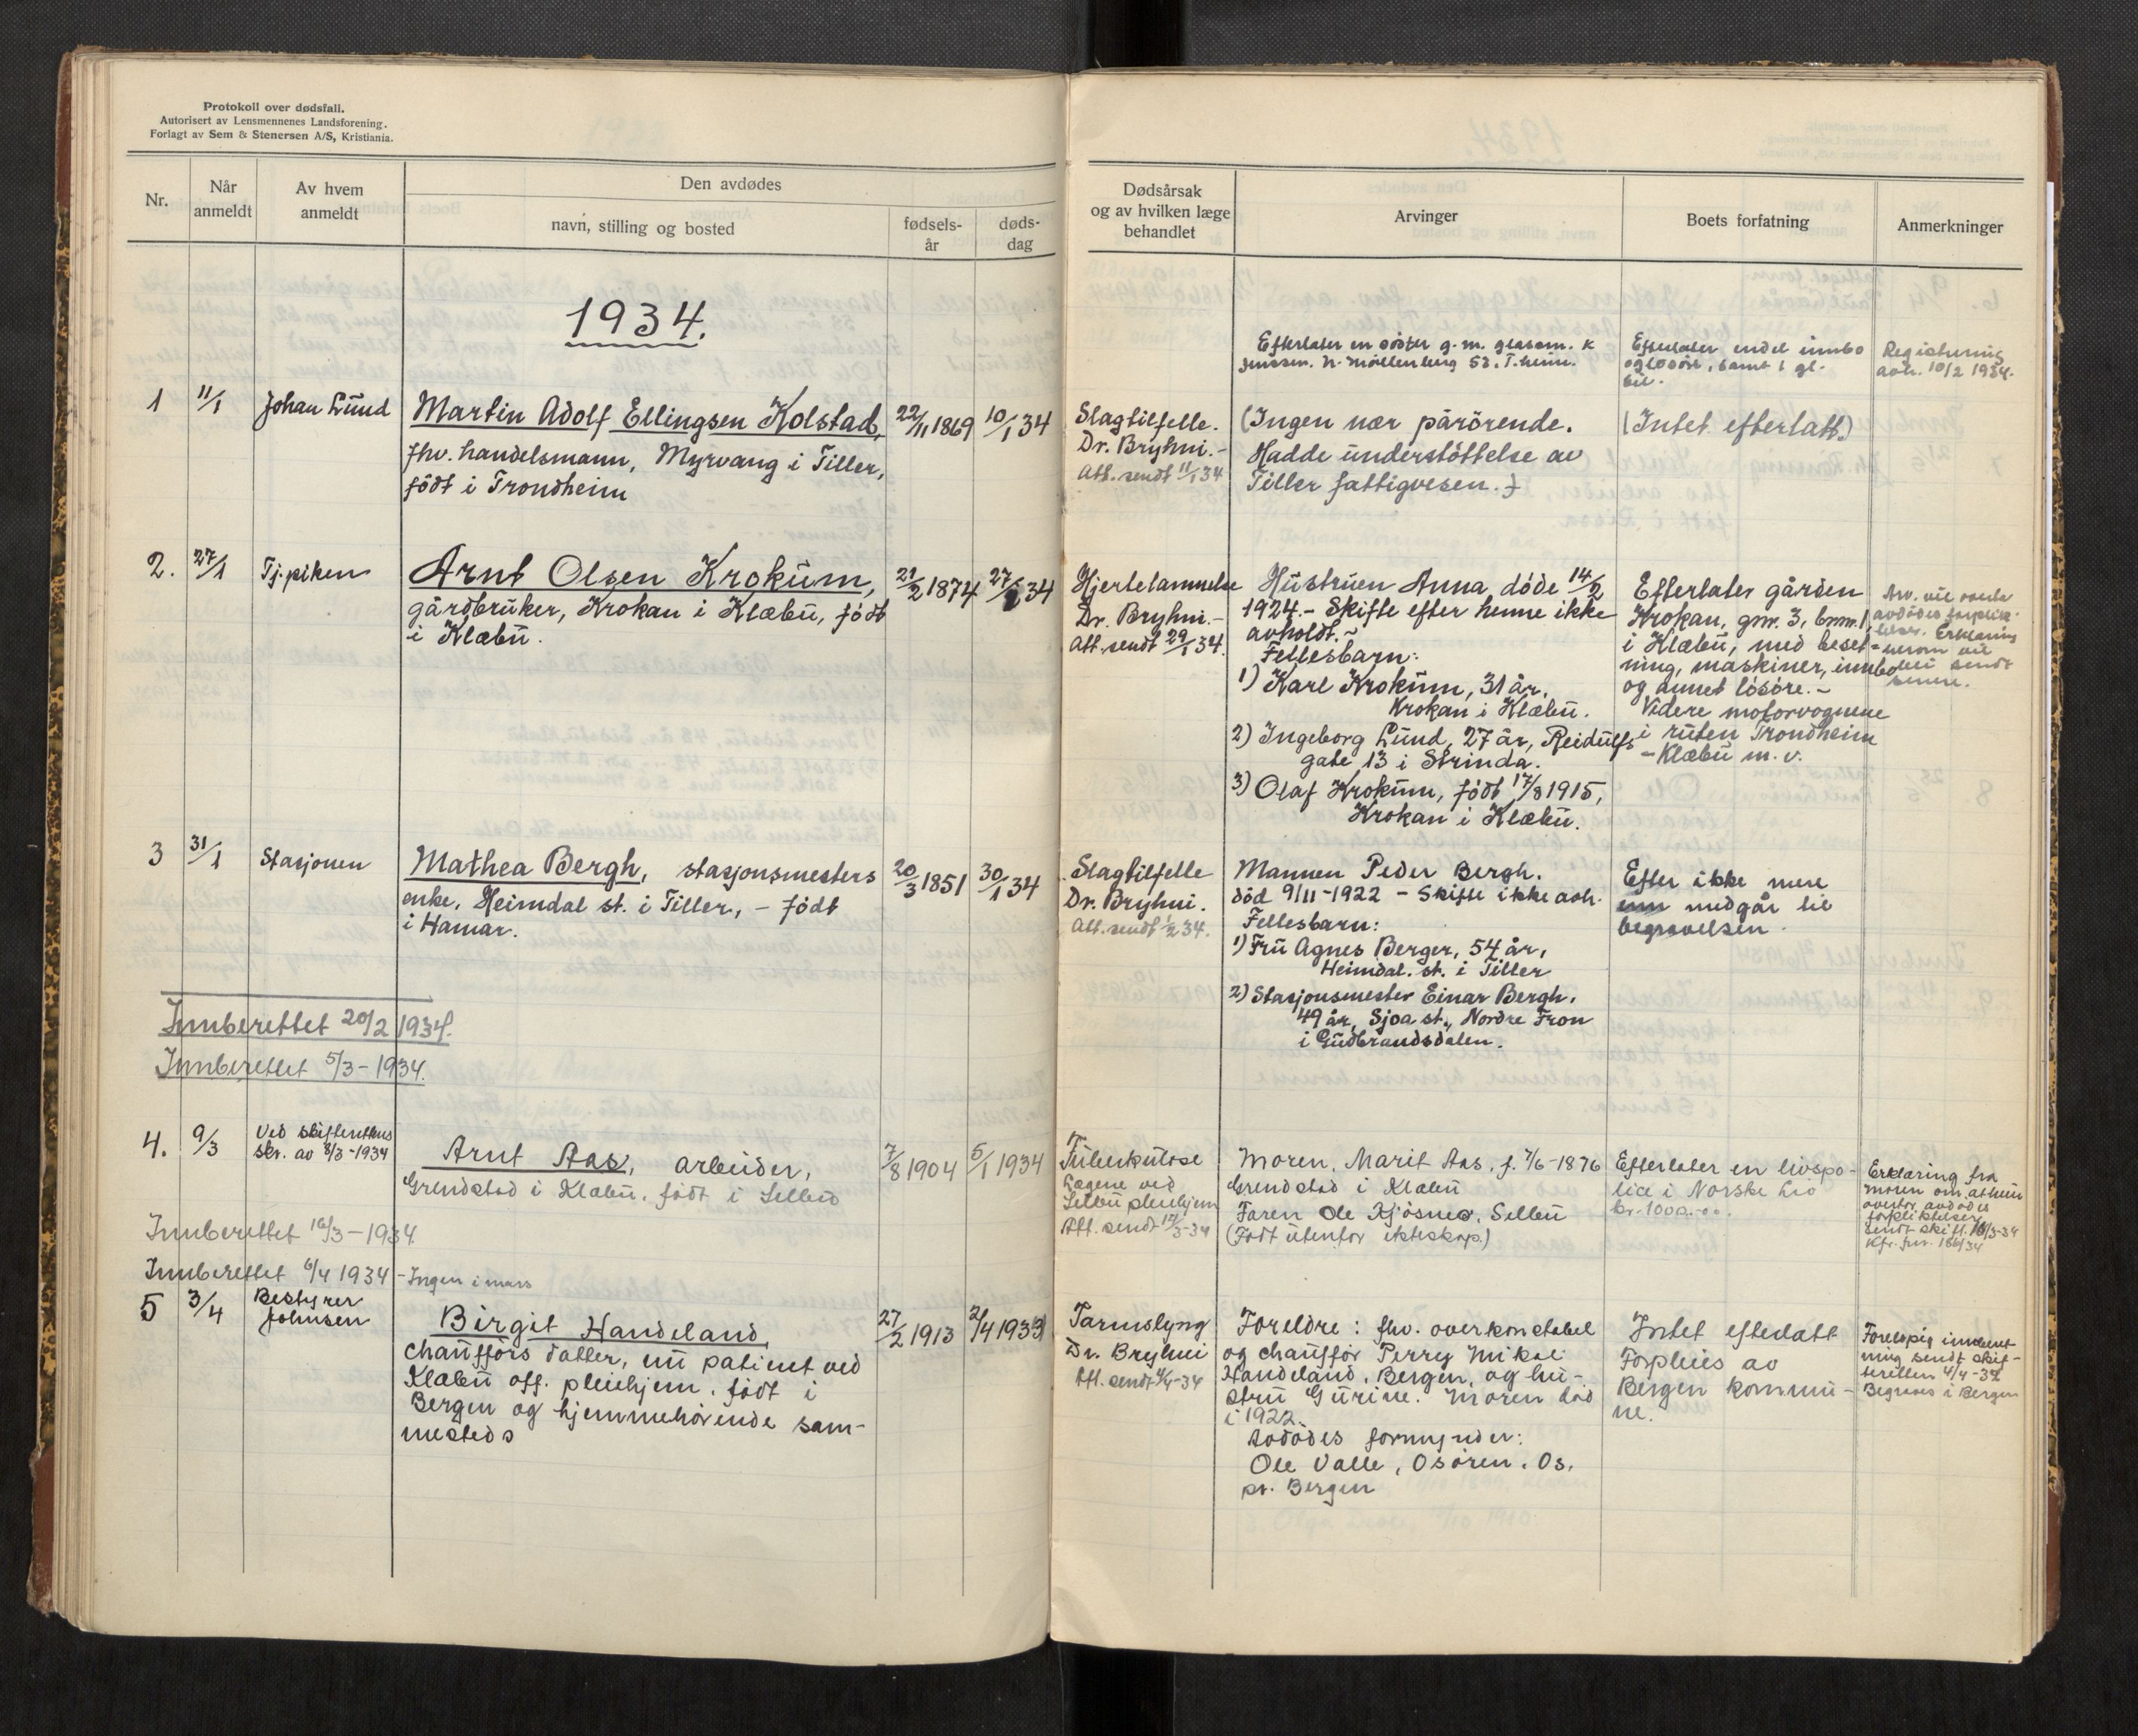 Protokoll over dødsfall.
Autorisert av Lensmennenes Landsforening.
Forlagt av Sem & Stenersen A/S, Kristiania.
Nr.
Når
anmeldt
Av hvem
anmeldt
Den avdødes
navn, stilling og bosted
fødsels-
år
døds-
dag
Dødsårsak
og av hvilken læge
behandlet
Arvinger
Boets forfatning
Anmerkninger
1934.
Efterlater en søster g. m. glasm. K
Jenssen. N. Möllenberg 52. T.heim.
Efterlater endel innbo
og løsøre, samt 1 gl.
bil.
Registrering
avh. 10/2 1934.
1
11/1
Johan Lund
Martin Adolf Ellingsen Kolstad,
fhv. handelsmann, Myrvang i Tiller,
født i Trondheim
22/11 1869
10/1 34
Slagtilfelle.
Dr. Bryhni.-
Att. sendt 11/1 34
(Ingen nær pårörende.
Hadde understöttelse av
Tiller fattigvesen.)
(Intet efterlatt.)
2.
27/1
Tj.piken
Arnt Olsen Krokum,
gårdbruker, Krokan i Klæbu, født
i Klæbu.
21/2 1874
27/1 34
Hjertelammelse
Dr. Bryhni.-
Att. sendt 29/1 34.
Hustruen Anna døde 14/2
1924.- Skifte efter henne ikke
avholdt.-
Fellesbarn:
1) Karl Krokum, 31 år,
Krokan i Klæbu.
2) Ingeborg Lund, 27 år, Reidulfs
gate 13 i Strinda.
3) Olaf Krokum, født 17/8 1915,
Krokan i Klæbu.
Efterlater gården
Krokan, gnr. 3, bnr. 1,
i Klæbu, med beset-
ning, maskiner, innbo
og annet løsøre.-
Videre motorvognene
i ruten Trondheim
- Klæbu m. v.
Arv. vil overta
avdødes forplik-
telser. Erklæring
herom vil
bli sendt
senere.
3
31/1
Stasjonen
Mathea Bergh, stasjonsmesters
enke, Heimdal st. i Tiller, - født
i Hamar.
20/3 1851
30/1 34
Slagtilfelle
Dr. Bryhni.
Att. sendt 1/2 34.
Mannen Peder Bergh.
död 9/11-1922 - Skifte ikke avh.
Fellesbarn:
1) Fru Agnes Berger, 54 år,
Heimdal. st. i Tiller
2) Stasjonsmester Einar Bergh.
49 år, Sjoa st., Nordre Fron
i Gudbrandsdalen.
Efter ikke mere
enn medgår til
begravelsen.
Innberettet 20/2 1934.
Innberettet 5/3-1934.
4.
9/3
Ved skifterettens
skr. av 8/3-1934
Arnt Aas, arbeider,
Grendstad i Klæbu, født i Selbu
7/8 1904
5/1 1934
Tuberkulose
Lægene ved
Selbu pleiehjem
Att. sendt 12/3-34
Moren, Marit Aas, f. 7/6-1876
Grendstad i Klæbu
Faren Ole Kjösnes, Selbu
(Født utenfor ekteskap.)
Efterlater en livspo-
lice i Norske Liv
kr. 1000.-
Erklæring fra
moren om at hun
overtar avdødes
forpliktelser
sendt skift. 16/3-34
Kfr. jnr. 186/34
Innberettet 16/3-1934
Innberettet 6/4 1934 - Ingen i mars
5
3/4
Bestyrer
Johnsen
Birgit Handeland,
chaufførs datter, nu patient ved
Klæbu off. pleiehjem. født i
Bergen og hjemmehörende sam-
mesteds
27/2 1913
2/4 1933
Tarmslyng
Dr. Bryhni
Att. sendt 4/4-34
Foreldre: fhv. overkonstabel
og chauffør Perry Mikal
Handeland, Bergen, og hu-
stru Gurine. Moren död
i 1922.
Avdödes formynder:
Ole Valle, Osören. Os.
pr. Bergen
Intet efterlatt
Forpleies av
Bergen kommu-
ne.
Foreløpig innberet-
ning sendt skif-
teretten 4/4-34
Begraves i Bergen